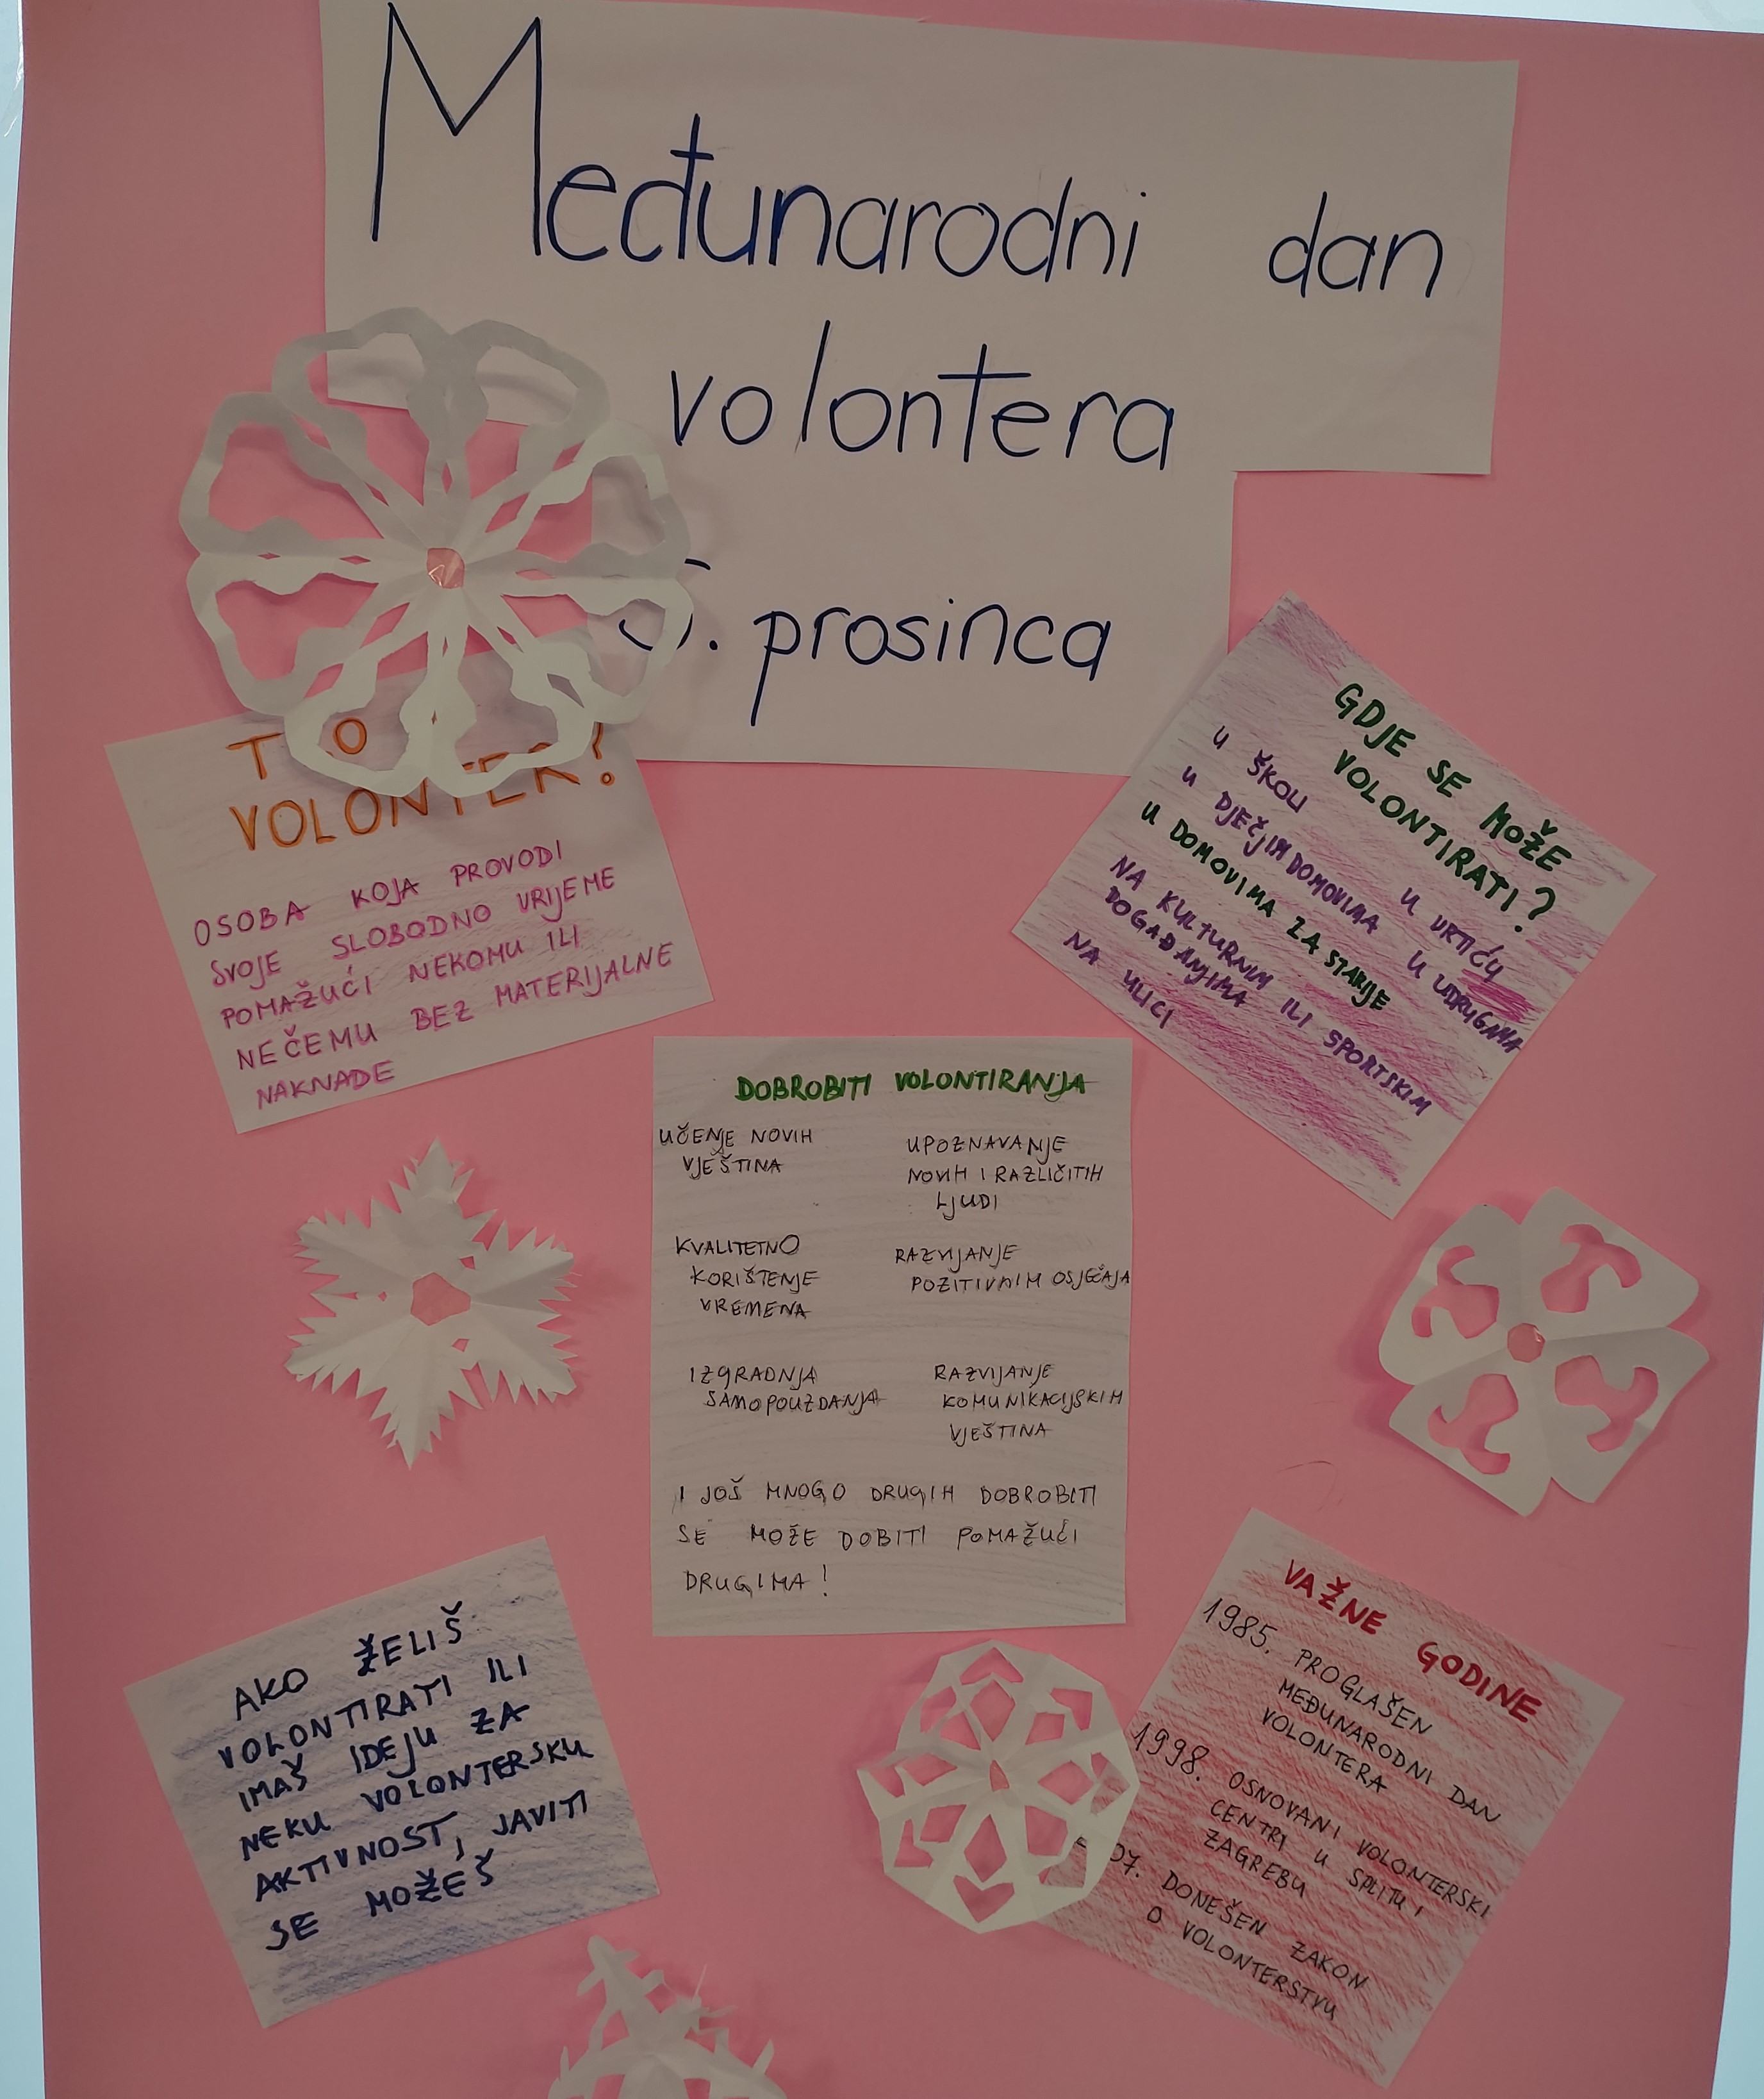 Međunarodni dan
volontera
5. prosinca
VOLONTER?
OSOBA KOJA PROVODI
SVOJE SLOBODNO VRIJEME
POMAŽUĆI NEKOMU ILI
NEČEMU BEZ MATERIJALNE
NAKNADE
GDJE SE MOŽE
VOLONTIRATI?
U ŠKOLI U VRTIĆU
U DJEČJIM DOMOVIMA U UDRUGAMA
U DOMOVIMA ZA STARIJE
NA KULTURNIM ILI SPORTSKIM
DOGAĐANJIMA
NA ULICI
DOBROBITI VOLONTIRANJA
UČENJE NOVIH
VJEŠTINA
UPOZNAVANJE
NOVIH I RAZLIČITIH
LJUDI
KVALITETNO
KORIŠTENJE
VREMENA
RAZVIJANJE
POZITIVNIM OSJEČAJA
IZGRADNJA
SAMOPOUZDANJA
RAZVIJANJE
KOMUNIKACIJSKIM
VJEŠTINA
I JOŠ MNOGO DRUGIH DOBROBITI
SE MOŽE DOBITI POMAŽUĆI
DRUGIMA!
AKO ŽELIŠ
VOLONTIRATI ILI
IMAŠ IDEJU ZA
NEKU VOLONTERSKU
AKTIVNOST, JAVITI
SE MOŽEŠ
VAŽNE GODINE
1985. PROGLAŠEN
MEĐUNARODNI DAN
VOLONTERA
1998. OSNOVANI VOLONTERSKI
CENTRI U SPLITU I
ZAGREBU
DONEŠEN ZAKON
O VOLONTERSTVU